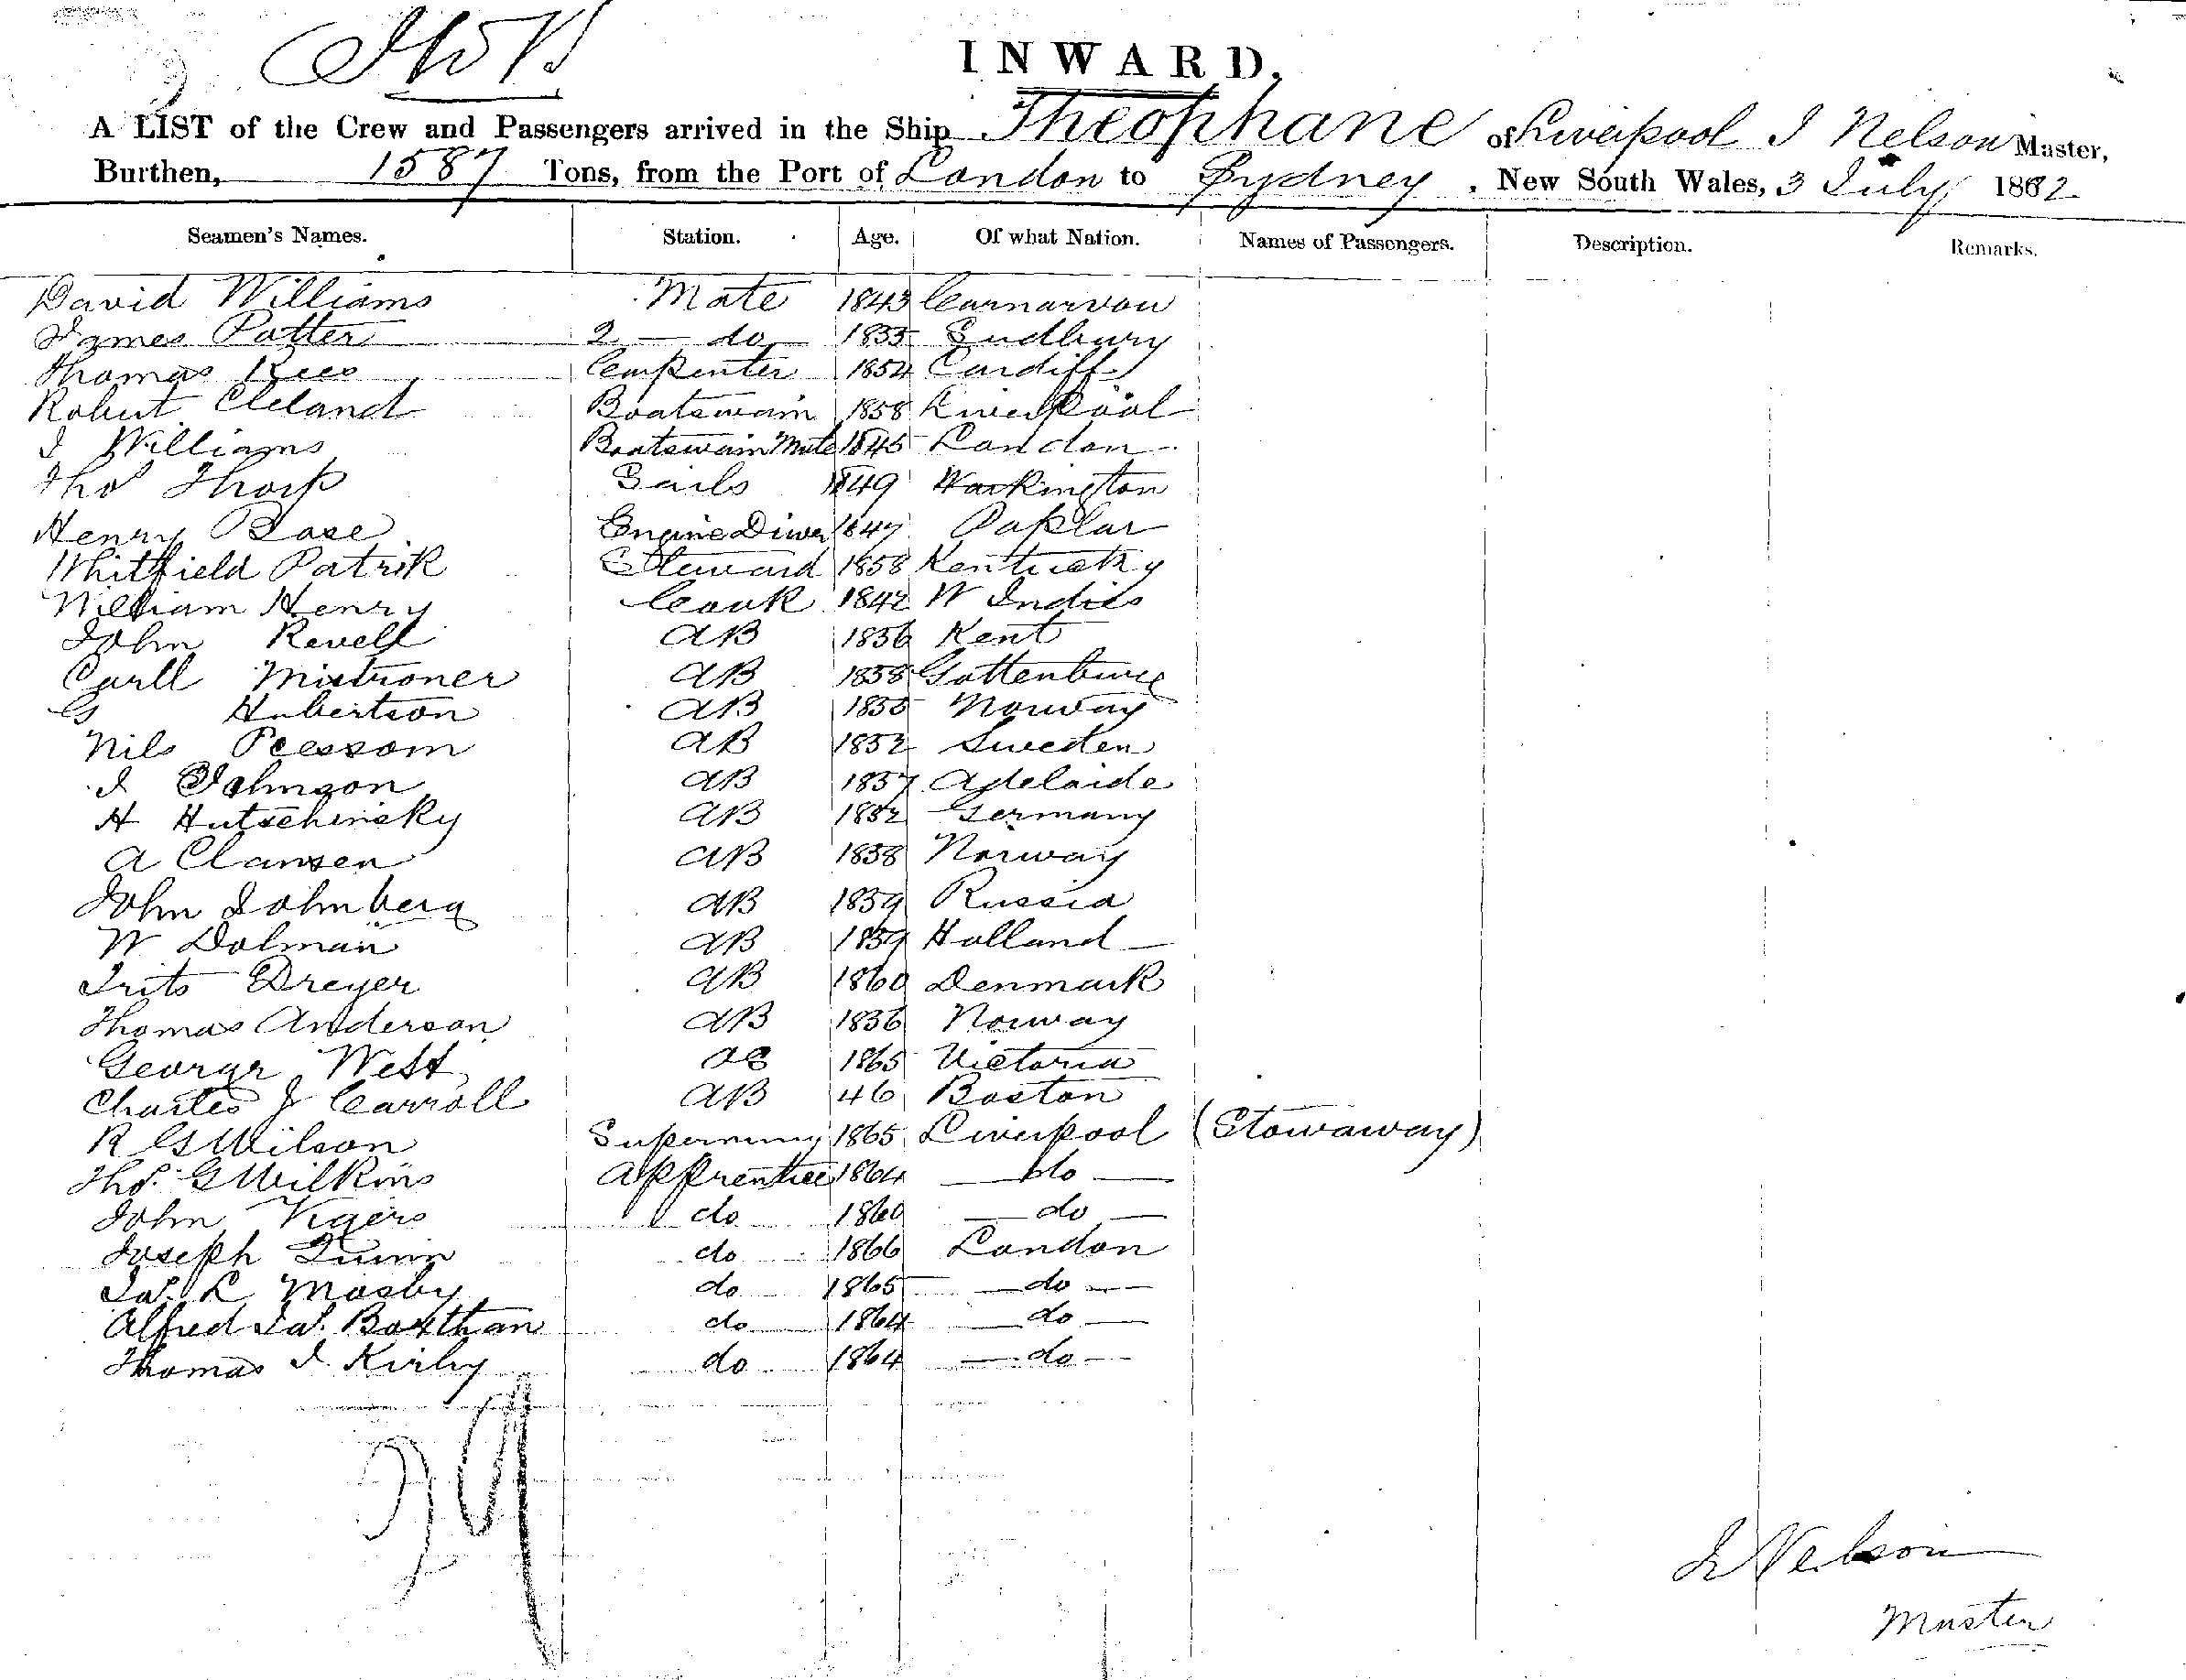 INWARD.
A LIST of the Crew and Passengers arrived in the Ship Theophane of Liverpool J Nelson Master,
Burthen, 1587 Tons, from the Port of London to Sydney, New South Wales, 3 July 1882
Seamen's Names. Station. Age. Of what Nation. Names of Passengers. Description. Remarks.
David Williams Mate 1843 Carnarvon
James Potter 2 — do 1835 Sudbury
Thomas Rees Carpenter 1854 Cardiff
Robert Cleland Boatswain 1858 Liverpool
J Williams Boatswain Mate 1845 London
Thos Thorp Sails 1849 Workington
Henry Base Engine Driver 1847 Poplar
Whitfield Patrik Steward 1858 Kentucky
William Henry Cook 1842 W Indies
John Revell AB 1856 Kent
Carll AB 1858 Gottenburg
G Hubertson AB 1855 Norway
Nils Peessom AB 1852 Sweden
J Johnson AB 1857 Adelaide
H Hutschinsky AB 1852 Germany
A Clansen AB 1858 Norway
John Johnberg AB 1859 Russia
W Dolman AB 1859 Holland
Frits Dreyer AB 1860 Denmark
Thomas Anderson AB 1856 Norway
George West 1865 Victoria
Charles J Carroll AB 46 Boston
R G Wilson Supernumy 1865 Liverpool (Stowaway)
Thos G Wilkins Apprentice 1864 — do —
John Vigers do 1860 — do —
Joseph Quinn do 1866 London
Jas. L Mosby do 1865 — do —
Alfred Jas. Boxthan do 1864 — do —
Thomas J. Kirby do 1864 — do —
29
J Nelson
Master